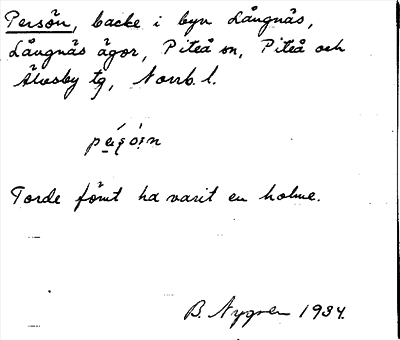 Persön, backe i byn Långnäs,
Långnäs ägor, Piteå sn, Piteå och
Älvsby tg, Norrb. l.
Torde förut ha varit en holme.
B. Nygren 1934.